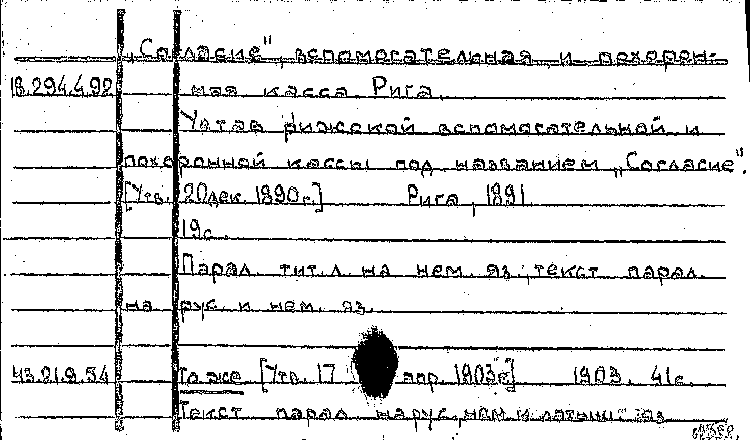 „Согласие", вспомогательная и похорон-
18.294.4.92 ная касса. Рига.
Устав рижской вспомогательной и
похоронной кассы под названием „Согласие".
[Утв. 20 дек. 1890 г.] Рига, 1891.
19 с.
Парал. тит. л. на нем. яз.; текст парал.
на рус. и нем. яз.
43.21.9.54 То же [Утв. 17 апр. 1903 г.] 1903. 41 с.
Текст парал. на рус., нем. и латыш. яз.